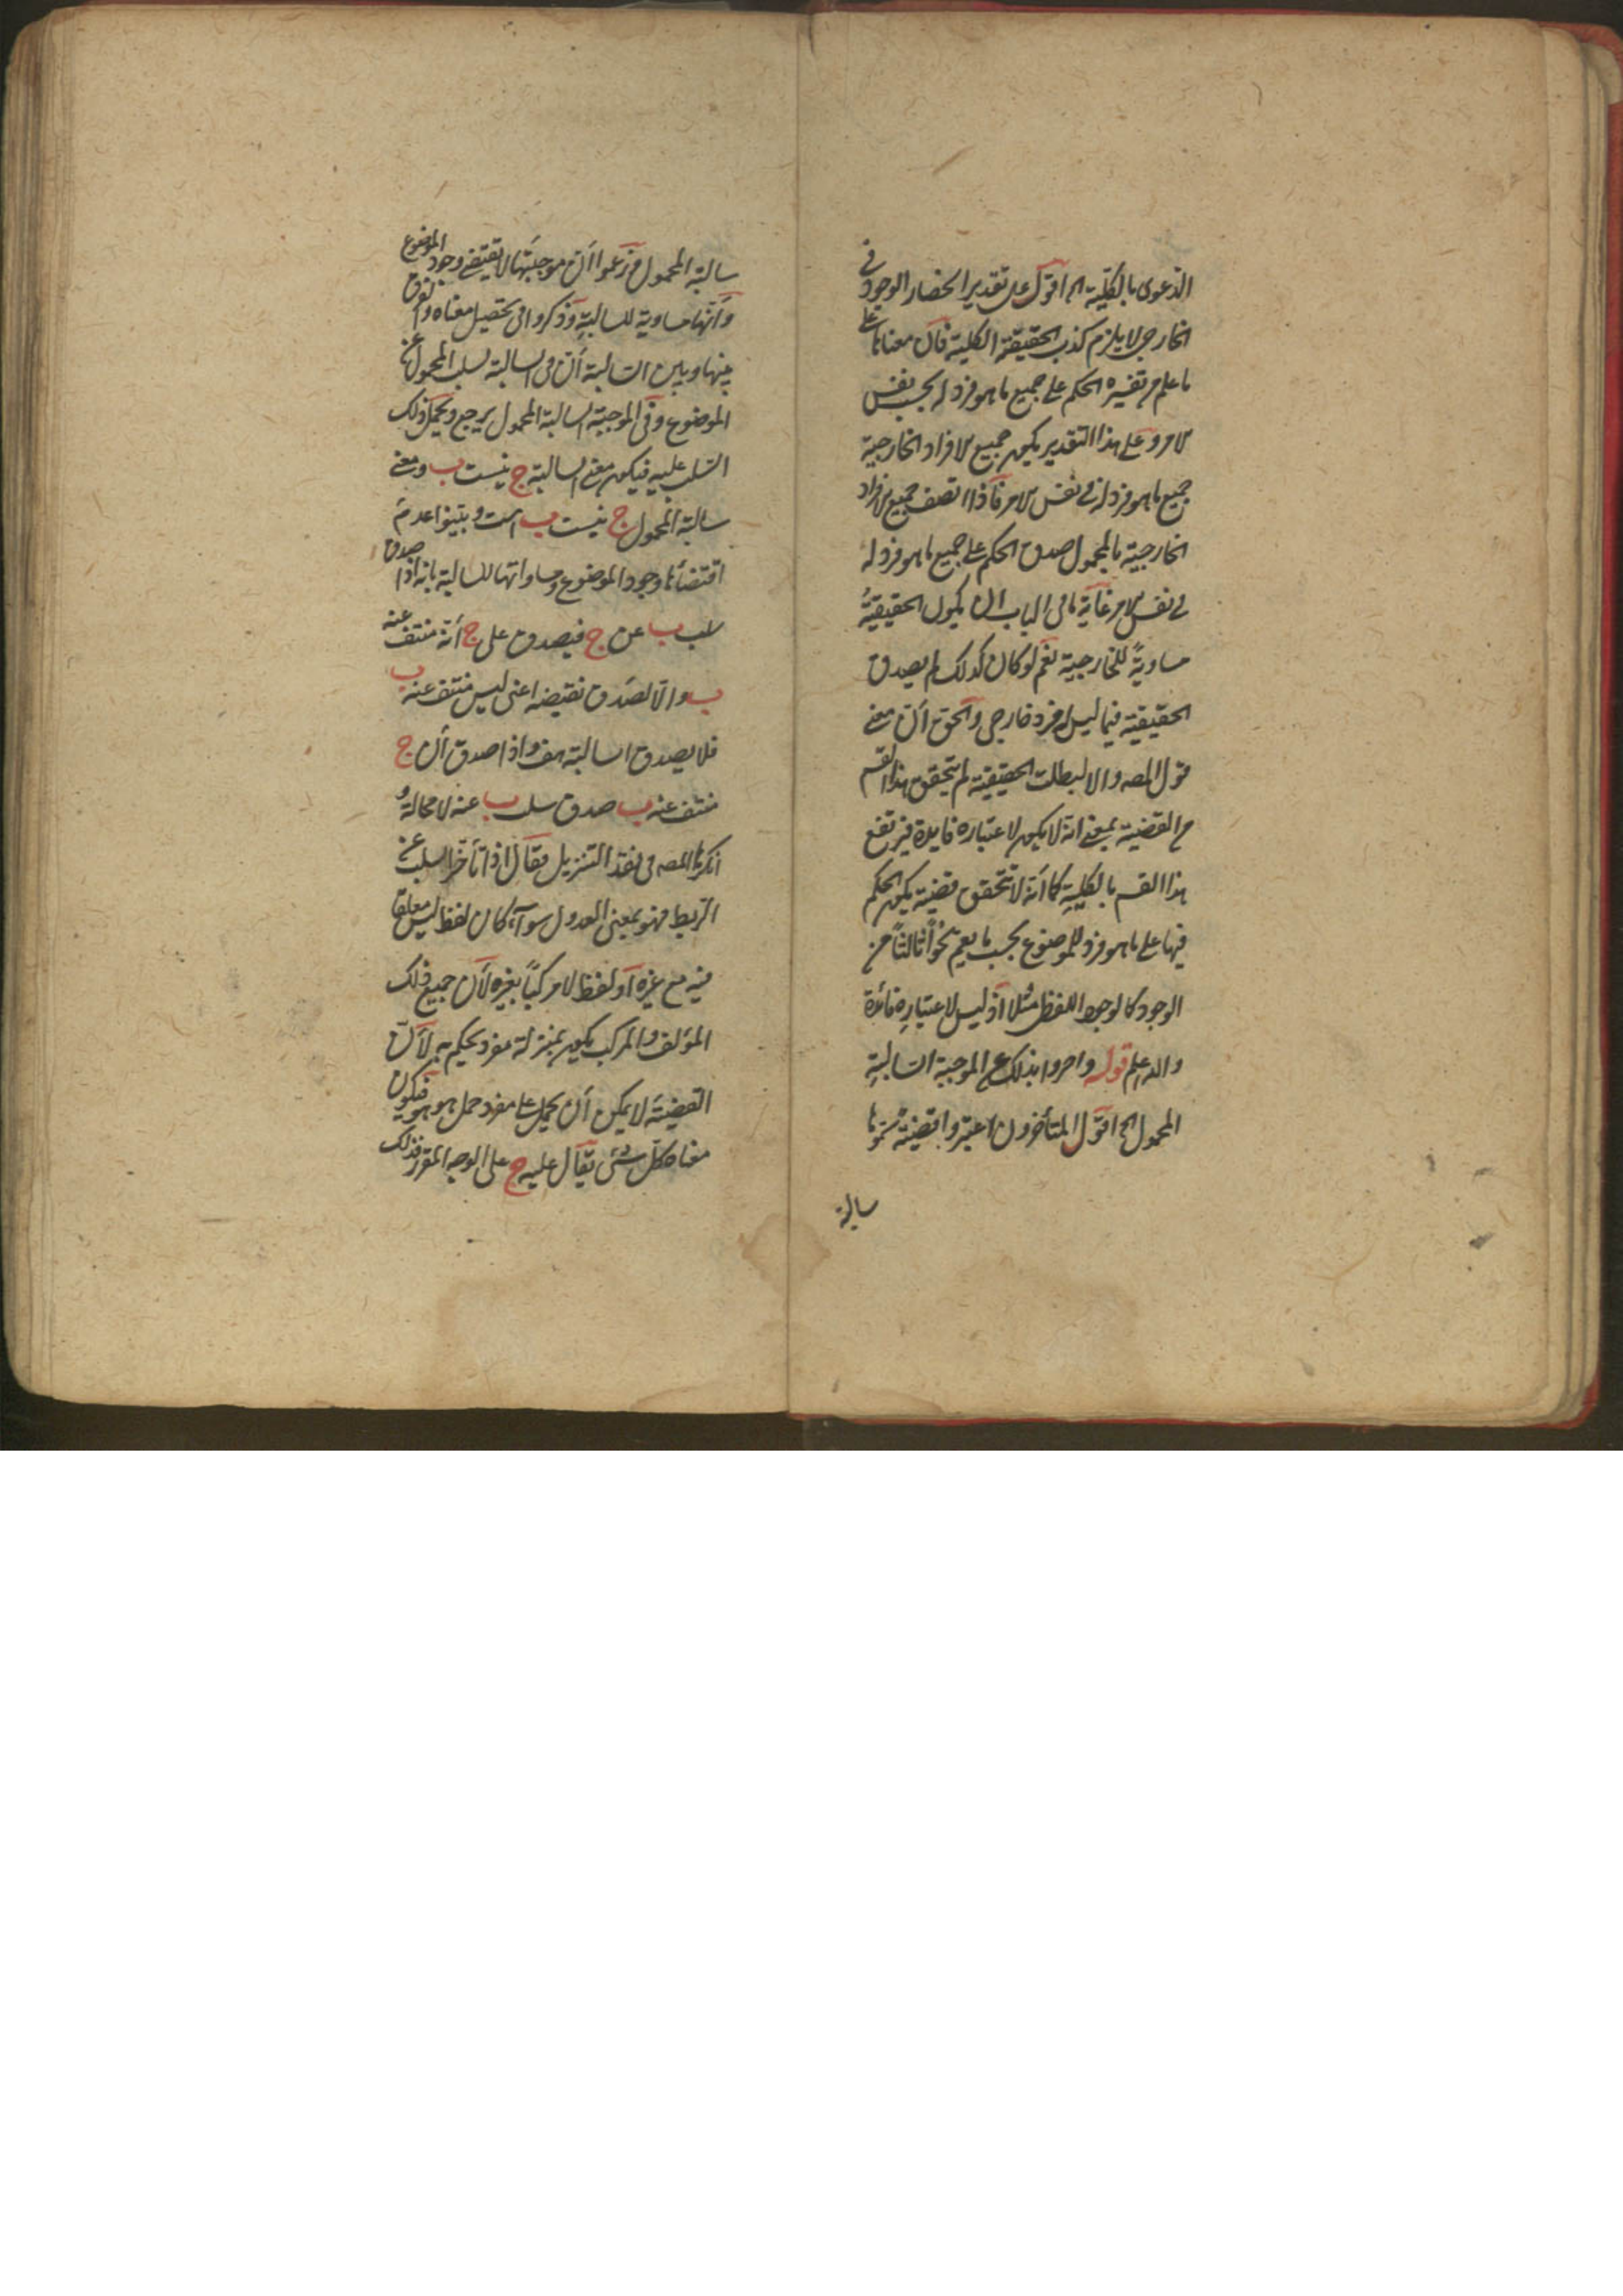 الدعوى بالكلية الخ اقول على تقدير انحصار الوجود في
الخارجي لا يلزم كذب الحقيقة الكلية فان معناها على
ما علم من تفسيره الحكم على جميع ما هو فرد له بحسب نفس
الامر وعلى هذا التقدير يكون جميع الافراد الخارجية
جميع ما هو فرد له في نفس الامر فاذا اتصف جميع الافراد
الخارجية بالمحمول صدق الحكم على جميع ما هو فرد له
في نفس الامر غاية ما في الباب ان يكون الحقيقية
مساوية للخارجية نعم لو كان كذلك لم يصدق
الحقيقية فيما ليس له فرد خارجي والحق أن معنى
قول المصه والا لبطلت الحقيقية لم يتحقق هذا القسم
من القضية بمعنى انه لا يكون لاعتباره فايدة فيرتفع
هذا القسم بالكلية كما أنه لا تتحقق قضية يكون الحكم
فيها على ما هو فرد للموضوع بحسب ما يعم نحواً ثالثاً من
الوجود كالوجود اللفظى مثلا اذ ليس لاعتباره فائدة
والله اعلم قوله وامروا بذلك عن الموجبة السالبة
المحمول الخ اقول المتأخرون اعتبروا قضية سموها
سالبة
سالبة المحمول وزعموا أن موجبتها لا تقتضى وجود الموضوع
وأنها مساوية للسالبة وذكروا فى تحصيل معناه والفرق
بينها وبين السالبة أن فى السالبة يسلب المحمول عن
الموضوع وفى الموجبة السالبة المحمول يرجع ويحمل ذلك
السلب عليه فيكون معنى السالبة ج نيست ب ومعنى
سالبة المحمول ج نيست ب است وبينوا عدم
اقتضائها وجود الموضوع ومساواتها للسالبة بانه اذا صدق
سلب ب عن ج فيصدق على ج أنه منتف عنه
ب والا لصدق نقيضه اعنى ليس منتف عنه ب
فلا يصدق السالبة هف واذا صدق أن ج
منتف عنه ب صدق سلب ب عنه لا محالة و
انكرها المصه فى نقد التنزيل فقال اذا تأخر السلب عن
الربط فهو بمعنى العدول سوآء كان لفظ ليس معلقا
فيه مع غيره أو لفظ لا مركباً بغيره لأن جميع ذلك
المؤلف والمركب يكون بمنزلة مفرد يحكم به لأن
القضية لا يمكن أن يحمل على مفرد حمل هو هو فيكون
معناه كل شئ يقال عليه ج على الوجه المقرر فذلك